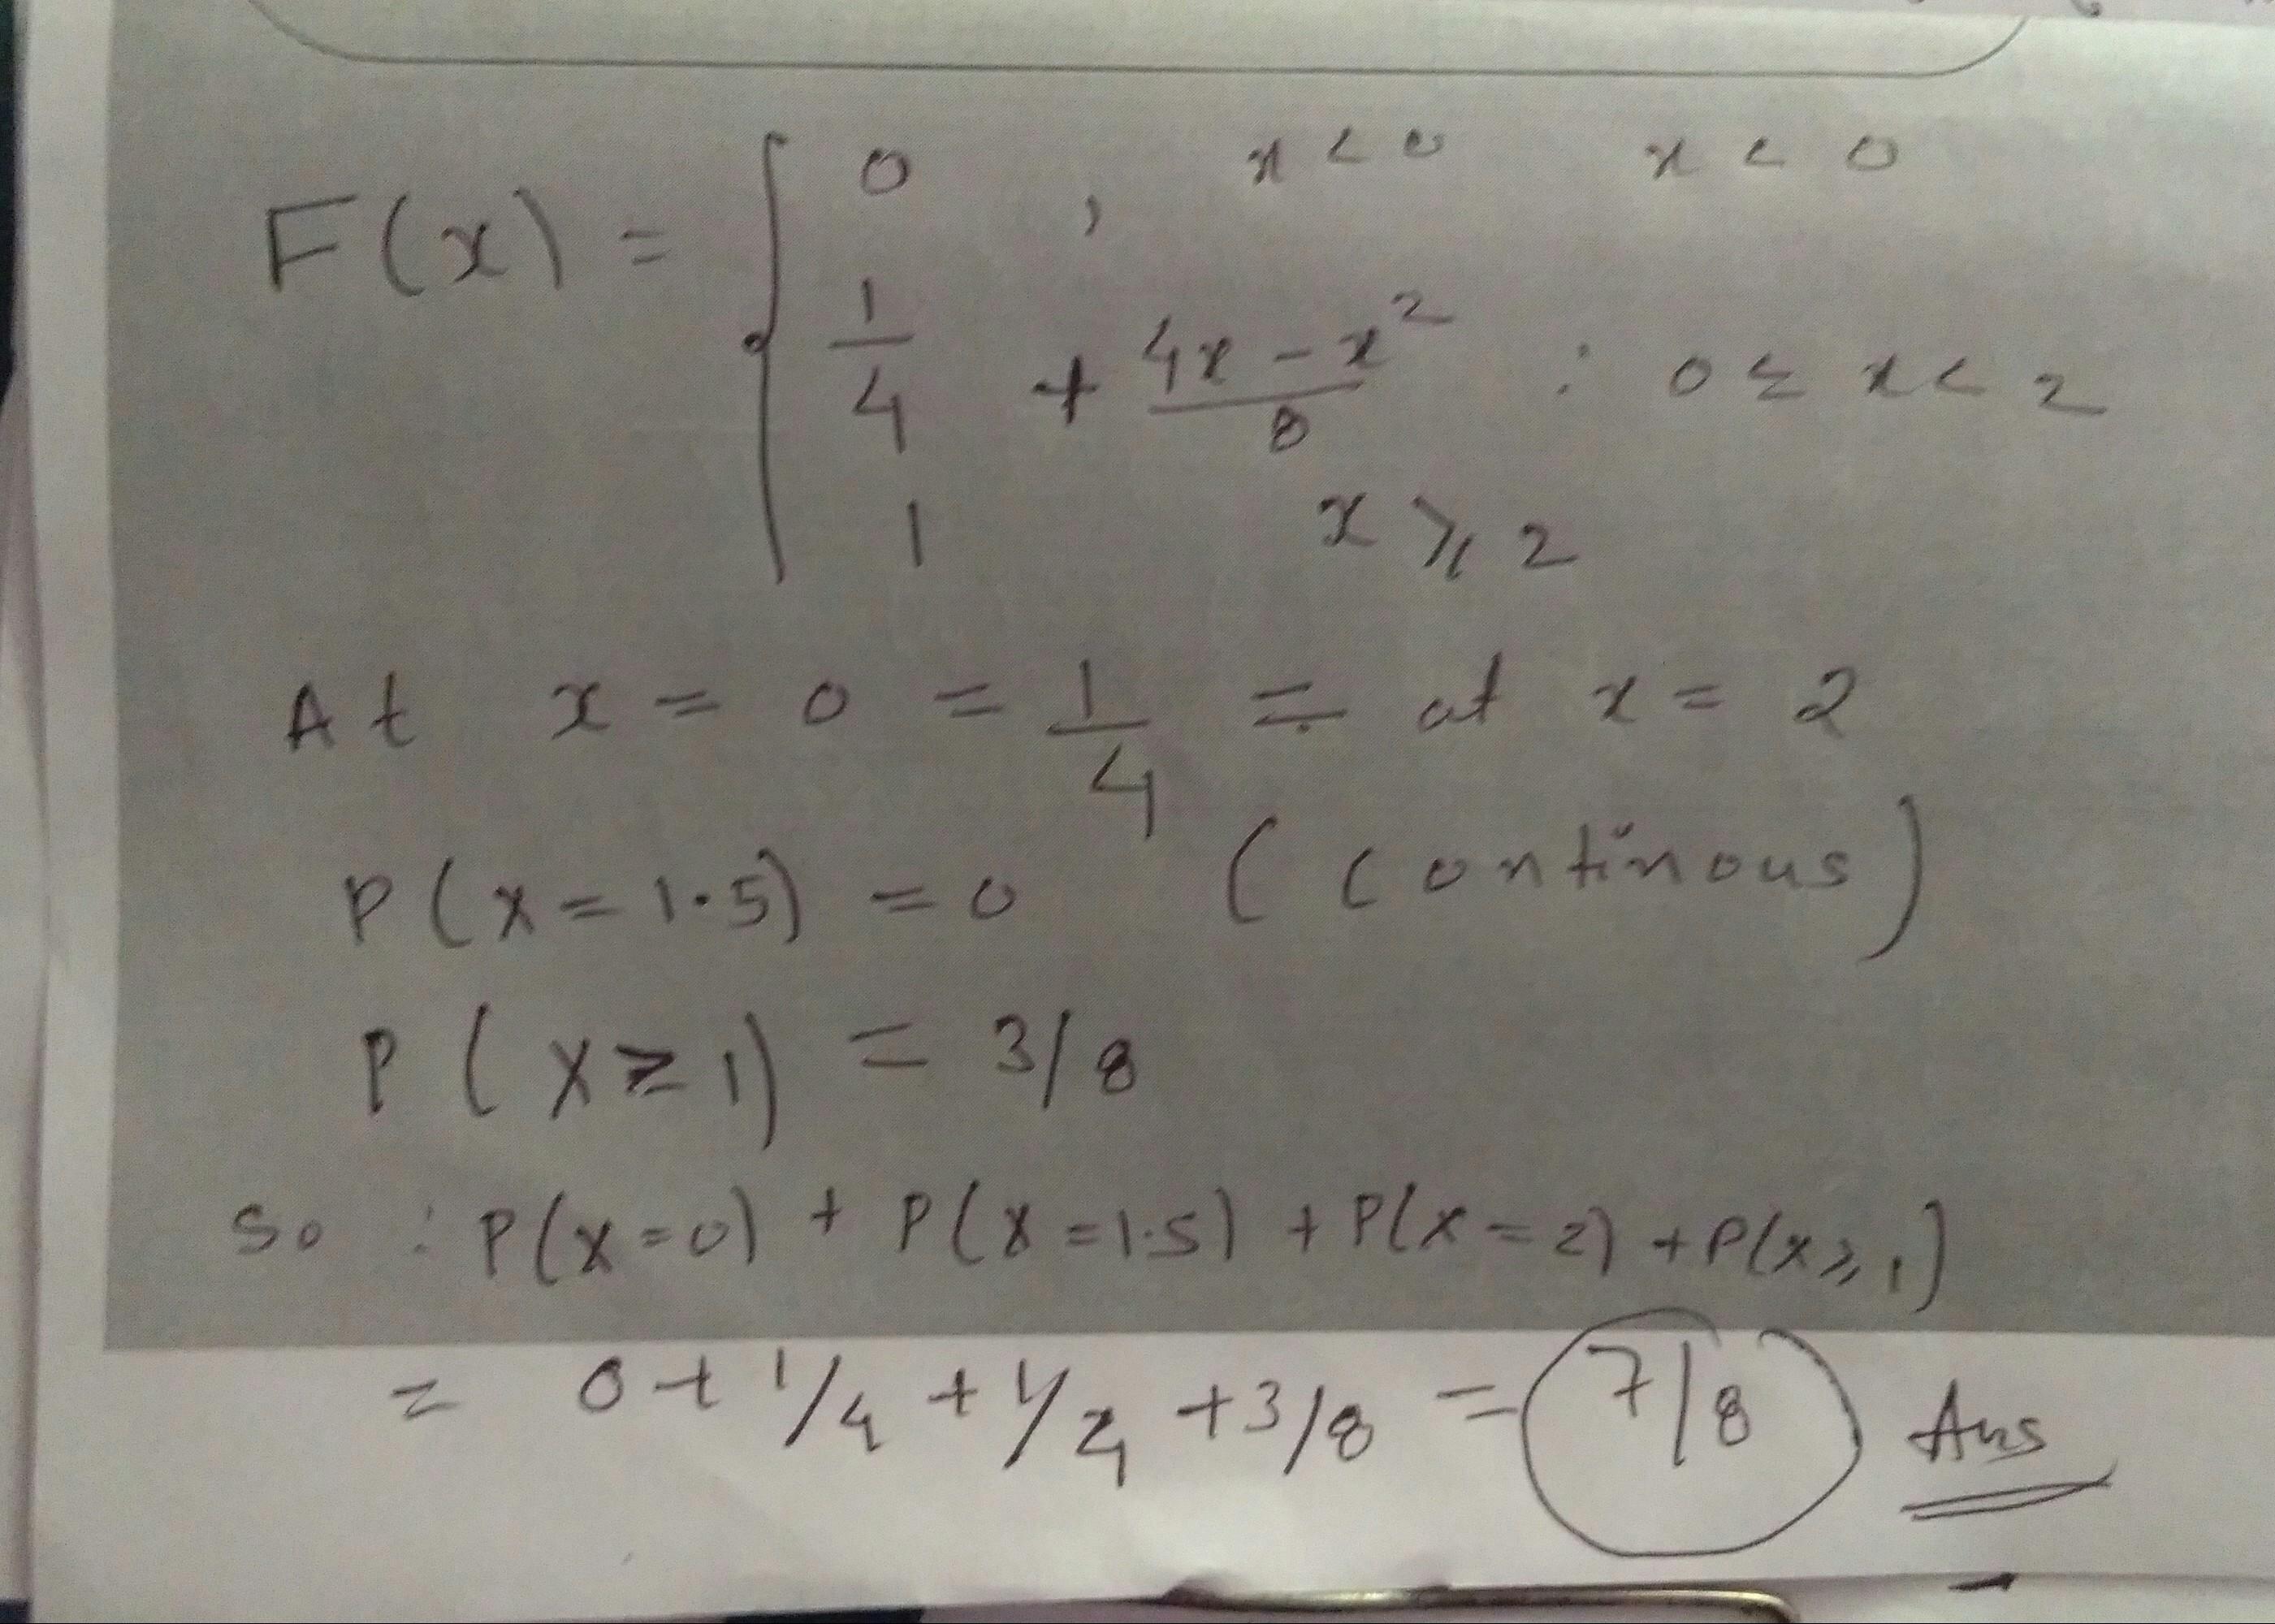 F(x) = { 0 , x < 0 x < 0
1/4 + (4x - x²)/8 : 0 ≤ x < 2
1 x ⩾ 2
At x = 0 = 1/4 = at x = 2
P(x = 1.5) = 0 (continous)
P(X ≥ 1) = 3/8
So : P(X=0) + P(X=1.5) + P(X=2) + P(X⩾1)
= 0 + 1/4 + 1/4 + 3/8 = 7/8 Ans